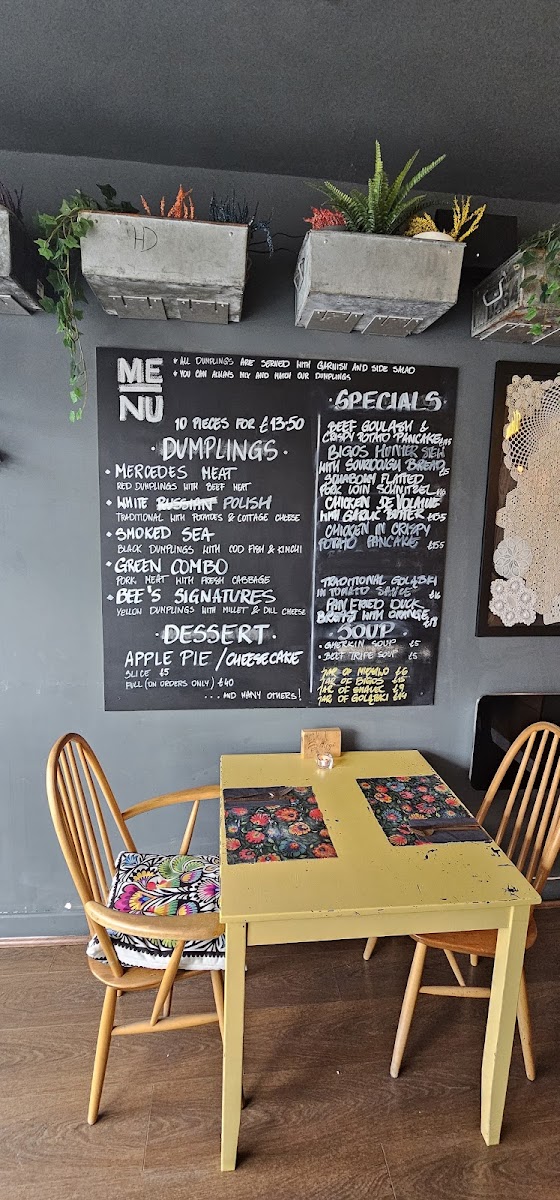 HD
S
ME
NU
* ALL DUMPLINGS ARE SERVED WITH GARNISH AND SIDE SALAD
* YOU CAN ALWAYS MIX AND MATCH OUR DUMPLINGS
10 PIECES FOR £13·50
· DUMPLINGS ·
· MERCEDES MEAT
RED DUMPLINGS WITH BEEF MEAT
· WHITE RUSSIAN POLISH
TRADITIONAL WITH POTATOES & COTTAGE CHEESE
· SMOKED SEA
BLACK DUMPLINGS WITH COD FISH & KIMCHI
· GREEN COMBO
PORK MEAT WITH FRESH CABBAGE
· BEE'S SIGNATURES
YELLOW DUMPLINGS WITH MILLET & DILL CHEESE
· DESSERT ·
APPLE PIE / CHEESECAKE
SLICE £5
FULL (ON ORDERS ONLY) £40
... AND MANY OTHERS!
· SPECIALS ·
BEEF GOULASH &
CRISPY POTATO PANCAKE
BIGOS HUNTER STEW
WITH SOURDOUGH BREAD
FLATTED
PORK LOIN SCHNITZEL
CHICKEN DE VOLAILLE
WITH GARLIC BUTTER
CHICKEN IN CRISPY
POTATO PANCAKE
TRADITIONAL GOLĄBKI
IN TOMATO SAUCE £16
PAN FRIED DUCK
BREAST WITH ORANGE £18
· SOUP ·
· GHERKIN SOUP £5
· BEEF TRIPE SOUP £5
JAR OF £6
JAR OF BIGOS
JAR OF £9
JAR OF GOLĄBKI £14